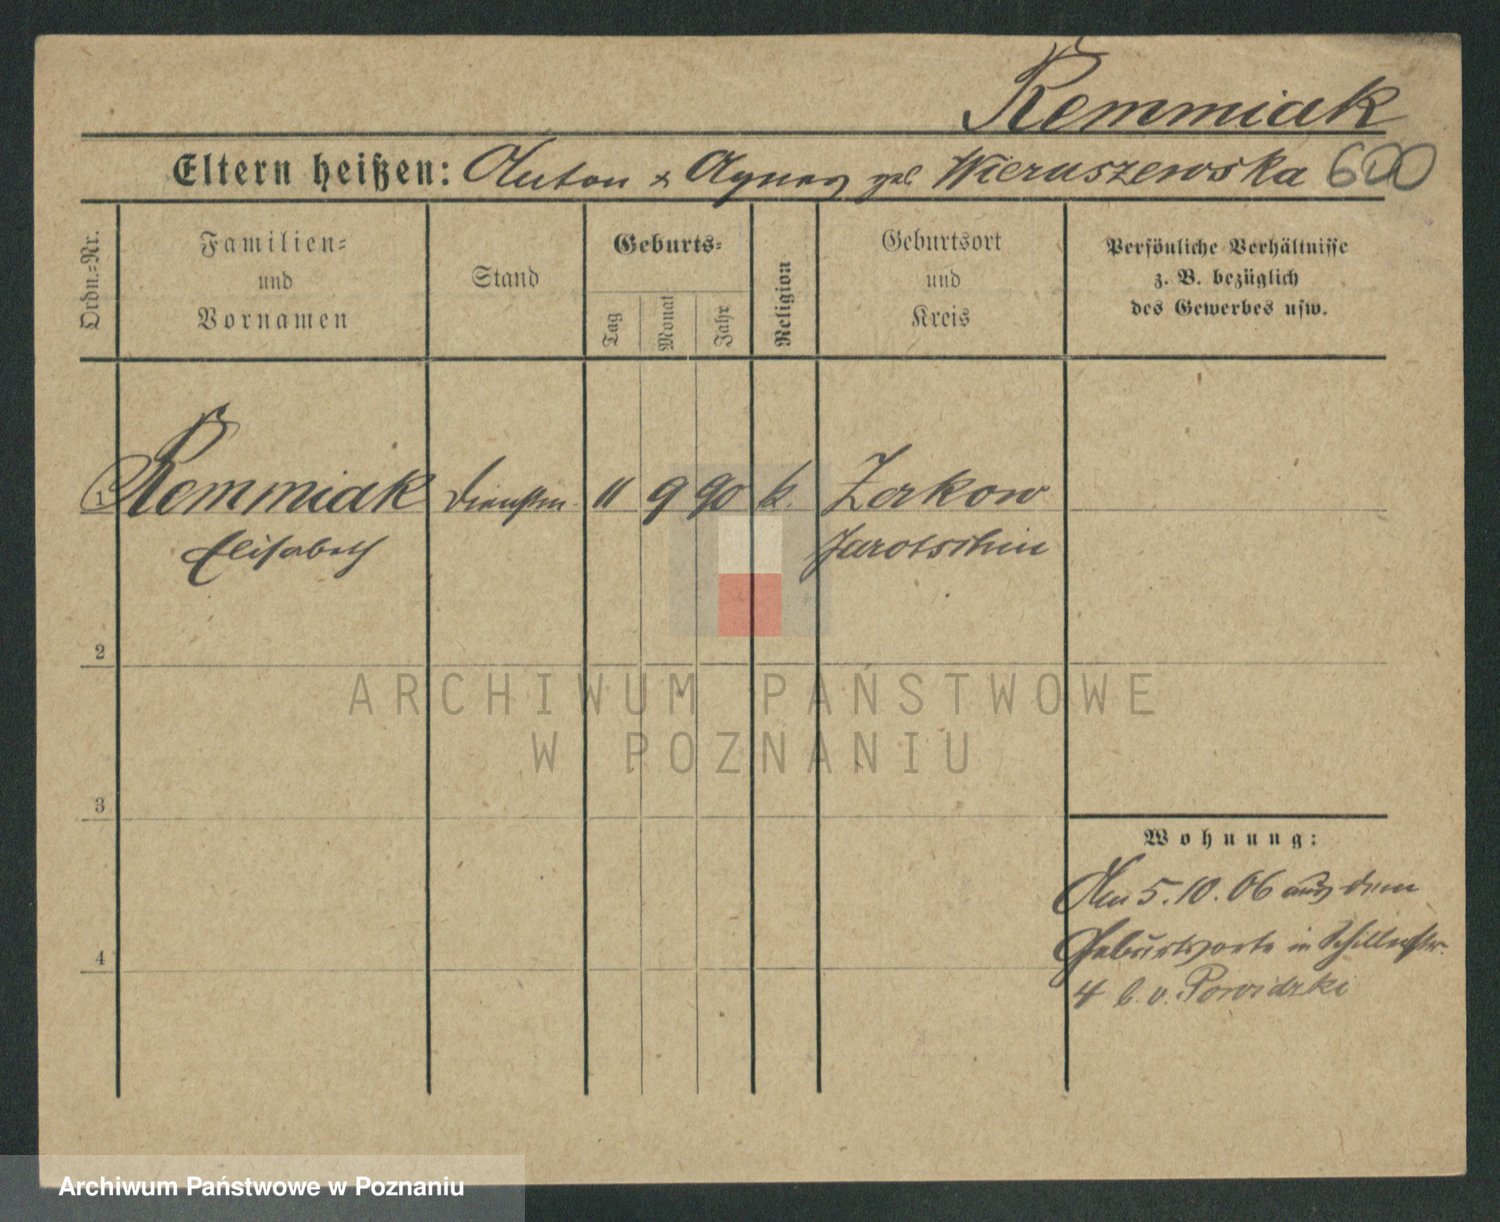 Remmiak
Eltern heißen: Anton & Agnes geb Wieruszewska 600
Ordn.=Nr.
Familien=
und
Vornamen
Stand
Geburts=
Tag
Monat
Jahr
Religion
Geburtsort
und
Kreis
Persönliche Verhältnisse
z. B. bezüglich
des Gewerbes usw.
1 Remmiak Dienstm. 11 9 90 k. Zerkow
Elisabeth Jarotschin
2
ARCHIWUM PAŃSTWOWE
W POZNANIU
3
Wohnung:
Am 5.10.06 aus dem
Geburtsorte in Schillerstr.
4
4 b. v. Powidzki
Archiwum Państwowe w Poznaniu